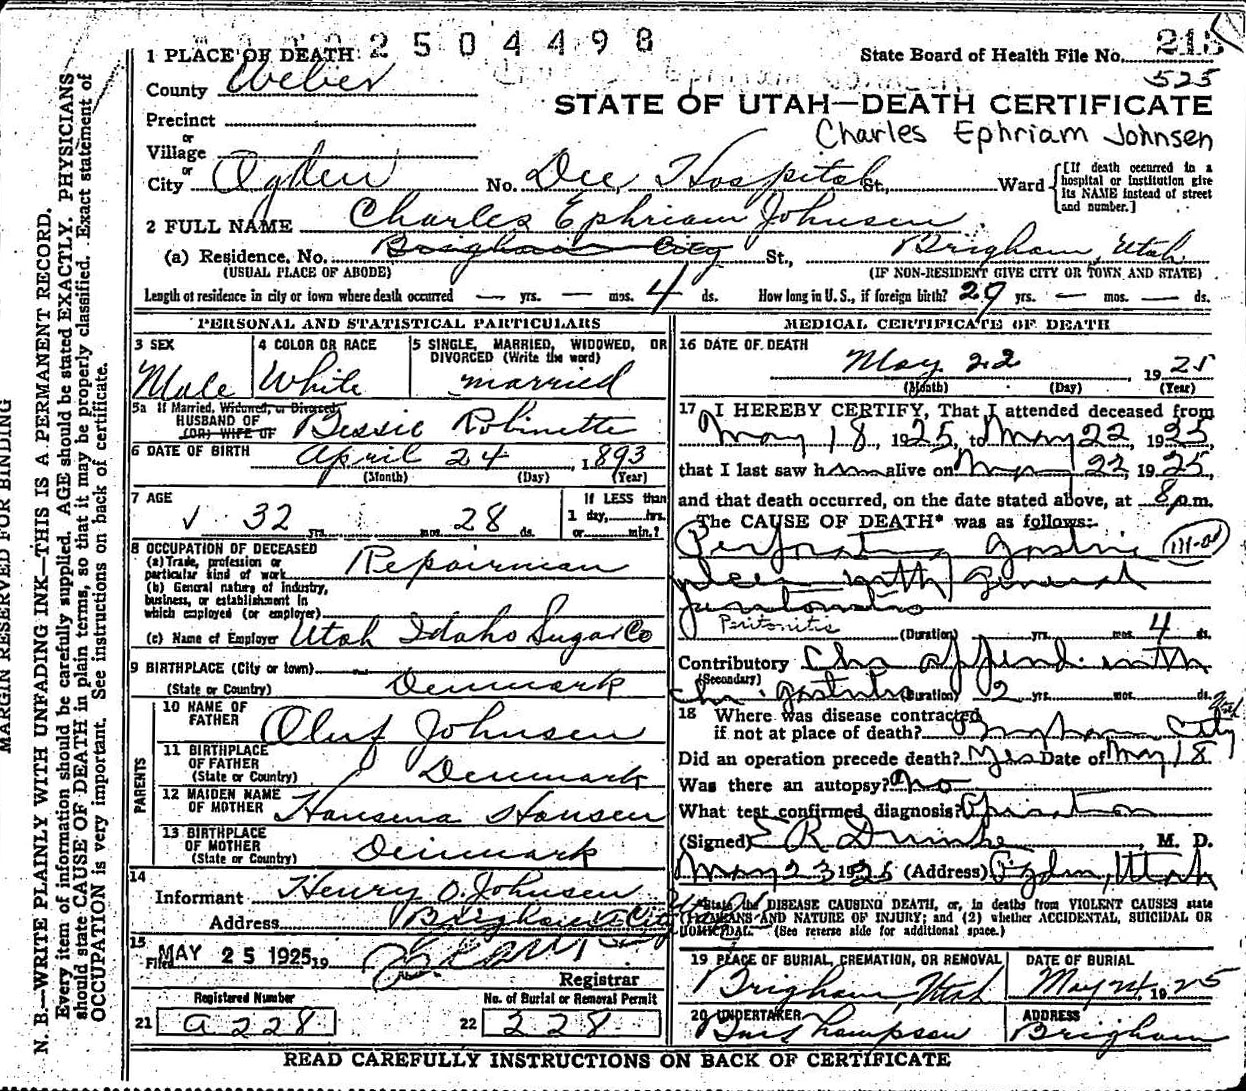 2504498
1 PLACE OF DEATH
State Board of Health File No. 215
525
County Weber
STATE OF UTAH—DEATH CERTIFICATE
Precinct
Charles Ephriam Johnsen
or
Village
or
City Ogden No. Dee Hospital St., Ward
[If death occurred in a hospital or institution give its NAME instead of street and number.]
2 FULL NAME Charles Ephriam Johnsen
(a) Residence. No. Brigham City St., Brigham, Utah
(USUAL PLACE OF ABODE) (IF NON-RESIDENT GIVE CITY OR TOWN AND STATE)
Length of residence in city or town where death occurred — yrs. — mos. 4 ds. How long in U. S., if foreign birth? 29 yrs. — mos. — ds.
PERSONAL AND STATISTICAL PARTICULARS
3 SEX
Male
4 COLOR OR RACE
White
5 SINGLE, MARRIED, WIDOWED, OR
DIVORCED (Write the word)
married
5a If Married, Widowed, or Divorced
HUSBAND OF
(OR) WIFE OF Bessie Robinette
6 DATE OF BIRTH April 24, 1893
(Month) (Day) (Year)
7 AGE
32 yrs. mos. 28 ds.
If LESS than
1 day, hrs.
or min.?
8 OCCUPATION OF DECEASED
(a) Trade, profession or
particular kind of work Repairman
(b) General nature of industry,
business, or establishment in
which employed (or employer)
(c) Name of Employer Utah Idaho Sugar Co
9 BIRTHPLACE (City or town)
(State or Country) Denmark
PARENTS
10 NAME OF
FATHER Oluf Johnsen
11 BIRTHPLACE
OF FATHER
(State or Country) Denmark
12 MAIDEN NAME
OF MOTHER Hansena Hansen
13 BIRTHPLACE
OF MOTHER
(State or Country) Denmark
14
Informant Henry O. Johnsen
Address Brigham City
15
Filed MAY 25 1925, 19
Registrar
Registered Number
21 a 228
No. of Burial or Removal Permit
22 228
MEDICAL CERTIFICATE OF DEATH
16 DATE OF DEATH
May 22, 1925
(Month) (Day) (Year)
17 I HEREBY CERTIFY, That I attended deceased from
May 18, 1925, to May 22, 1925,
that I last saw him alive on May 22, 1925,
and that death occurred, on the date stated above, at 8 p.m.
The CAUSE OF DEATH* was as follows:
Perforating gastric
ulcer with General
peritonitis
Peritonitis
(Duration) yrs. mos. 4 ds.
Contributory Chr append. with
(Secondary)
Chr. gastritis (Duration) 2 yrs. mos. ds.
18 Where was disease contracted
if not at place of death? Brigham City
Did an operation precede death? Yes Date of May 18
Was there an autopsy? no
What test confirmed diagnosis? Operation
(Signed) E R Dumke, M. D.
May 23 1925 (Address) Ogden, Utah
*State the DISEASE CAUSING DEATH, or, in deaths from VIOLENT CAUSES state
(1) MEANS AND NATURE OF INJURY; and (2) whether ACCIDENTAL, SUICIDAL OR
HOMICIDAL. (See reverse side for additional space.)
19 PLACE OF BURIAL, CREMATION, OR REMOVAL
Brigham, Utah
DATE OF BURIAL
May 24, 1925
20 UNDERTAKER
Thompson
ADDRESS
Brigham
READ CAREFULLY INSTRUCTIONS ON BACK OF CERTIFICATE
MARGIN RESERVED FOR BINDING
N. B.—WRITE PLAINLY WITH UNFADING INK—THIS IS A PERMANENT RECORD.
Every item of information should be carefully supplied. AGE should be stated EXACTLY. PHYSICIANS
should state CAUSE OF DEATH in plain terms, so that it may be properly classified. Exact statement of
OCCUPATION is very important. See instructions on back of certificate.